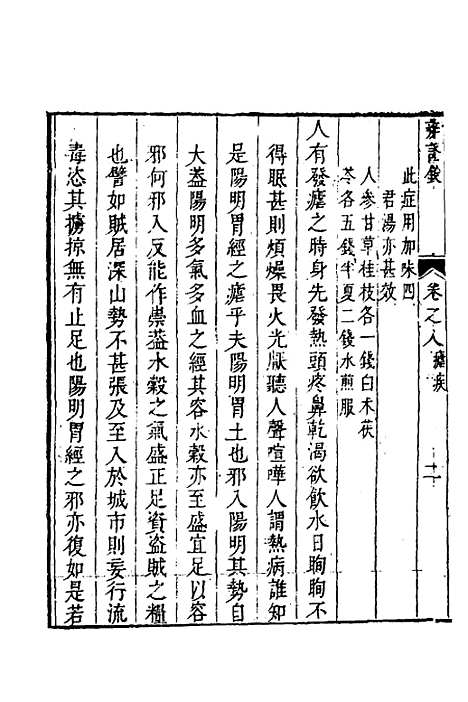 辨證錄
卷之八 瘧疾 十一
此症用加味四
君湯亦甚效
人參甘草桂枝各一錢白术茯
苓各五錢半夏二錢水煎服
人有發瘧之時身先發熱頭疼鼻乾渴欲飲水目眴眴不
得眠甚則煩燥畏火光厭聽人聲喧嘩人謂熱病誰知
是陽明胃經之瘧乎夫陽明胃土也邪入陽明其勢自
大蓋陽明多氣多血之經其容水穀亦至盛宜足以容
邪何邪入反能作祟蓋水穀之氣盛正足資盜賊之糧
也譬如賊居深山勢不甚張及至入於城市則妄行流
毒恣其擄掠無有止足也陽明胃經之邪亦復如是若